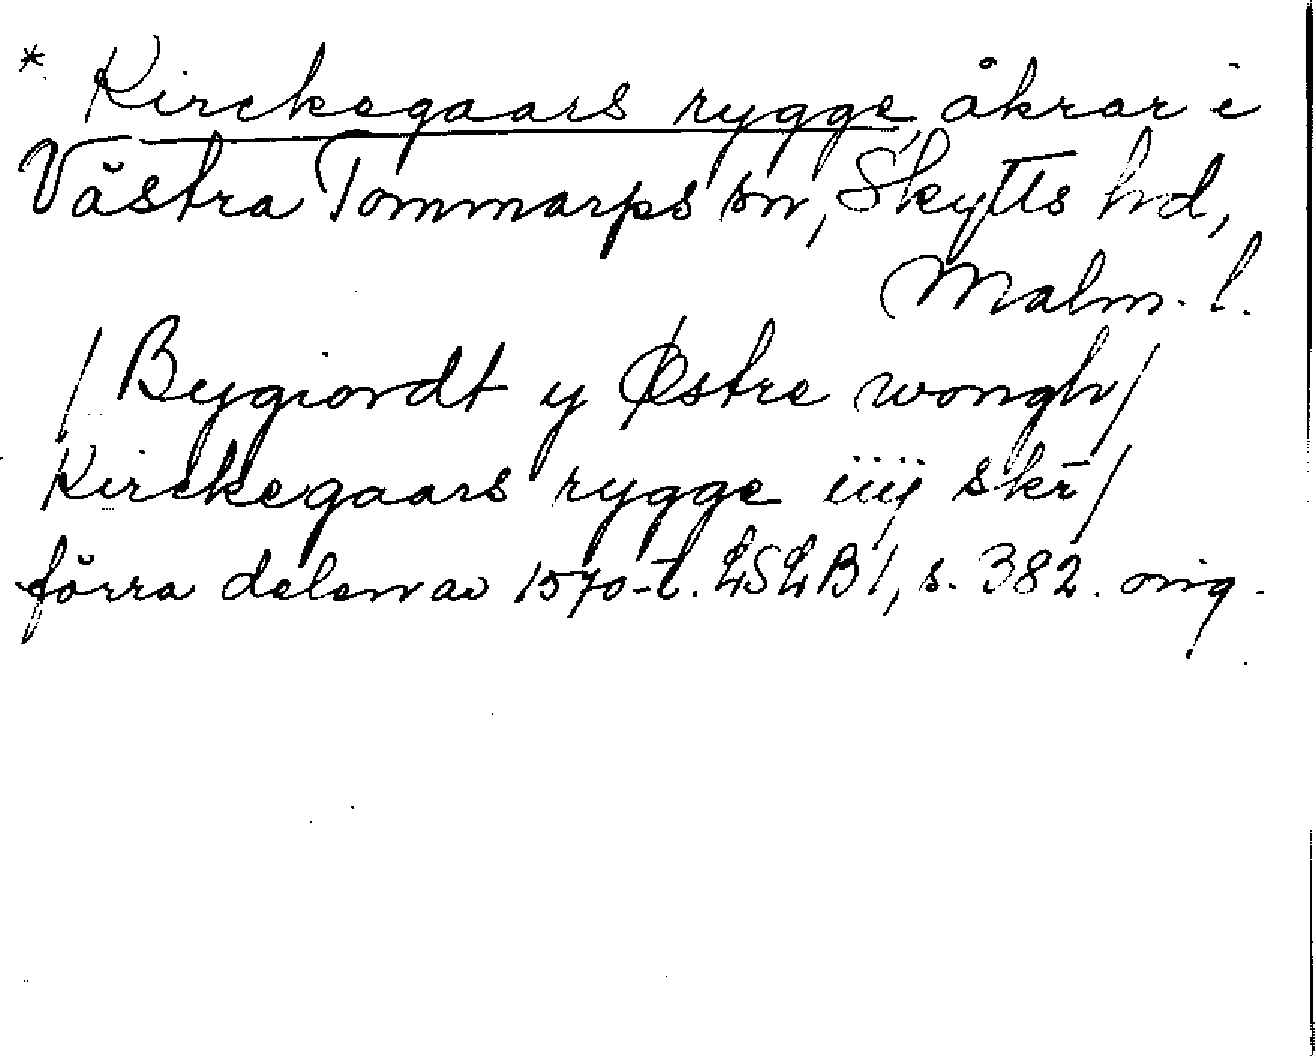 * Kirckegaars rygge, åkrar i
Västra Tommarps sn, Skytts hd,
Malm. l.
/ Bygiordt y Østre wongh /
Kirckegaars rygge iiij skr̄ /
förra delen av 1570-t. LSLB 1, s. 382. orig.